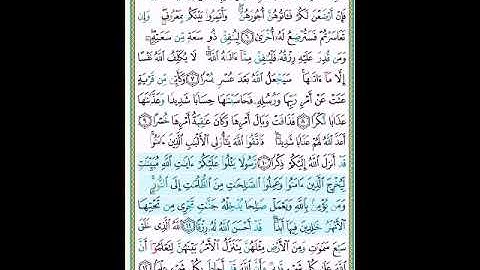 فَإِنْ أَرْضَعْنَ لَكُمْ فَـَٔاتُوهُنَّ أُجُورَهُنَّ وَأْتَمِرُوا۟ بَيْنَكُم بِمَعْرُوفٍ وَإِن
تَعَاسَرْتُمْ فَسَتُرْضِعُ لَهُۥٓ أُخْرَىٰ ٦ لِيُنفِقْ ذُو سَعَةٍ مِّن سَعَتِهِۦ
وَمَن قُدِرَ عَلَيْهِ رِزْقُهُۥ فَلْيُنفِقْ مِمَّآ ءَاتَىٰهُ ٱللَّهُ لَا يُكَلِّفُ ٱللَّهُ نَفْسًا
إِلَّا مَآ ءَاتَىٰهَا سَيَجْعَلُ ٱللَّهُ بَعْدَ عُسْرٍ يُسْرًا ٧ وَكَأَيِّن مِّن قَرْيَةٍ
عَتَتْ عَنْ أَمْرِ رَبِّهَا وَرُسُلِهِۦ فَحَاسَبْنَٰهَا حِسَابًا شَدِيدًا وَعَذَّبْنَٰهَا
عَذَابًا نُّكْرًا ٨ فَذَاقَتْ وَبَالَ أَمْرِهَا وَكَانَ عَٰقِبَةُ أَمْرِهَا خُسْرًا ٩
أَعَدَّ ٱللَّهُ لَهُمْ عَذَابًا شَدِيدًا فَٱتَّقُوا۟ ٱللَّهَ يَٰٓأُو۟لِى ٱلْأَلْبَٰبِ ٱلَّذِينَ ءَامَنُوا۟
قَدْ أَنزَلَ ٱللَّهُ إِلَيْكُمْ ذِكْرًا ١٠ رَّسُولًا يَتْلُوا۟ عَلَيْكُمْ ءَايَٰتِ ٱللَّهِ مُبَيِّنَٰتٍ
لِّيُخْرِجَ ٱلَّذِينَ ءَامَنُوا۟ وَعَمِلُوا۟ ٱلصَّٰلِحَٰتِ مِنَ ٱلظُّلُمَٰتِ إِلَى ٱلنُّورِ
وَمَن يُؤْمِنۢ بِٱللَّهِ وَيَعْمَلْ صَٰلِحًا يُدْخِلْهُ جَنَّٰتٍ تَجْرِى مِن تَحْتِهَا
ٱلْأَنْهَٰرُ خَٰلِدِينَ فِيهَآ أَبَدًا قَدْ أَحْسَنَ ٱللَّهُ لَهُۥ رِزْقًا ١١ ٱللَّهُ ٱلَّذِى خَلَقَ
سَبْعَ سَمَٰوَٰتٍ وَمِنَ ٱلْأَرْضِ مِثْلَهُنَّ يَتَنَزَّلُ ٱلْأَمْرُ بَيْنَهُنَّ لِتَعْلَمُوٓا۟ أَنَّ
ٱللَّهَ عَلَىٰ كُلِّ شَىْءٍ قَدِيرٌ وَأَنَّ ٱللَّهَ قَدْ أَحَاطَ بِكُلِّ شَىْءٍ عِلْمًۢا ١٢